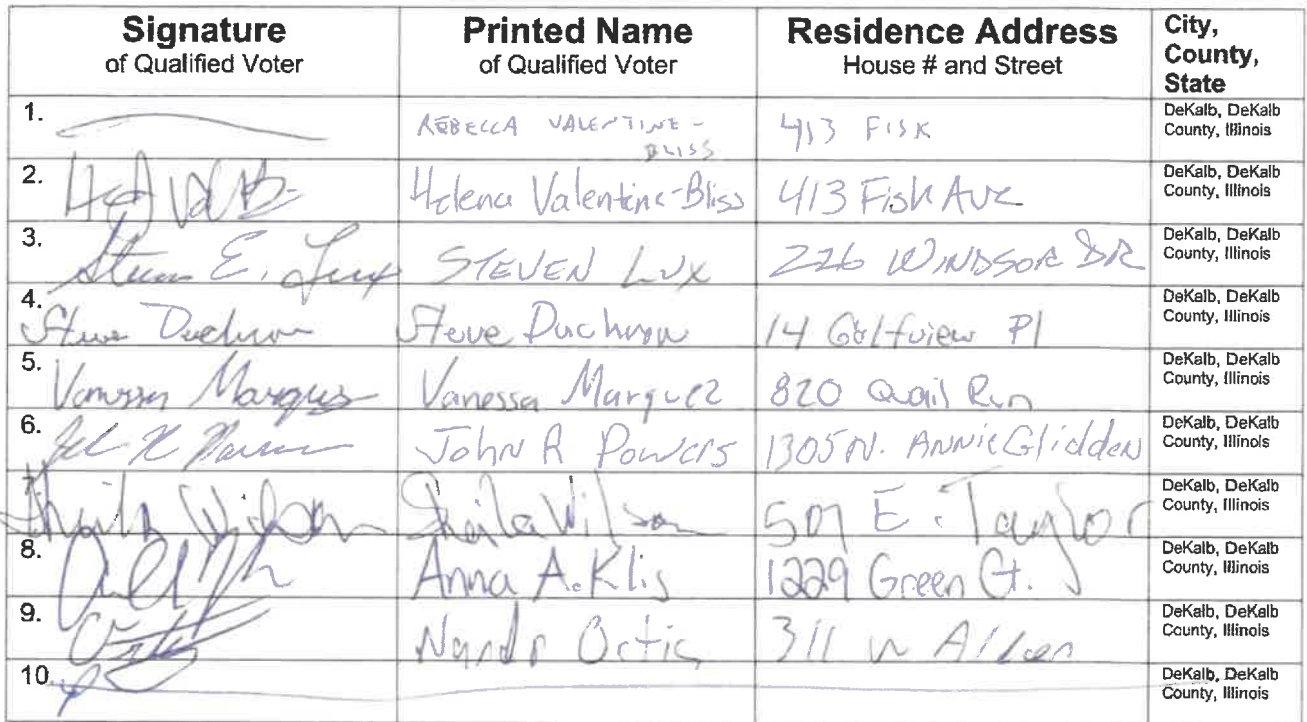 Signature
of Qualified Voter
Printed Name
of Qualified Voter
Residence Address
House # and Street
City,
County,
State
1. REBECCA VALENTINE- 413 FISK DeKalb, DeKalb
BLISS County, Illinois
2. Helena Valentine-Bliss 413 Fisk Ave DeKalb, DeKalb
County, Illinois
3. Steven E. Lux STEVEN LUX 226 WINDSOR DR DeKalb, DeKalb
County, Illinois
4. Steve Steve 14 Golfview Pl DeKalb, DeKalb
County, Illinois
5. Vanessa Marquez Vanessa Marquez 820 Quail Run DeKalb, DeKalb
County, Illinois
6. John R Powers 1305 N. Annie Glidden DeKalb, DeKalb
County, Illinois
Sheila Wilson Sheila Wilson 507 E. Taylor DeKalb, DeKalb
County, Illinois
8. Anna A. Klis 1229 Green Ct. DeKalb, DeKalb
County, Illinois
9. 311 W DeKalb, DeKalb
County, Illinois
10. DeKalb, DeKalb
County, Illinois